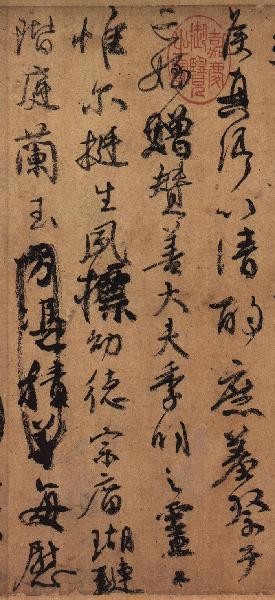 侯真卿以清酌庶羞祭于
亡姪贈贊善大夫季明之靈曰
惟爾挺生夙標幼德宗廟瑚璉
階庭蘭玉方憑積善每慰